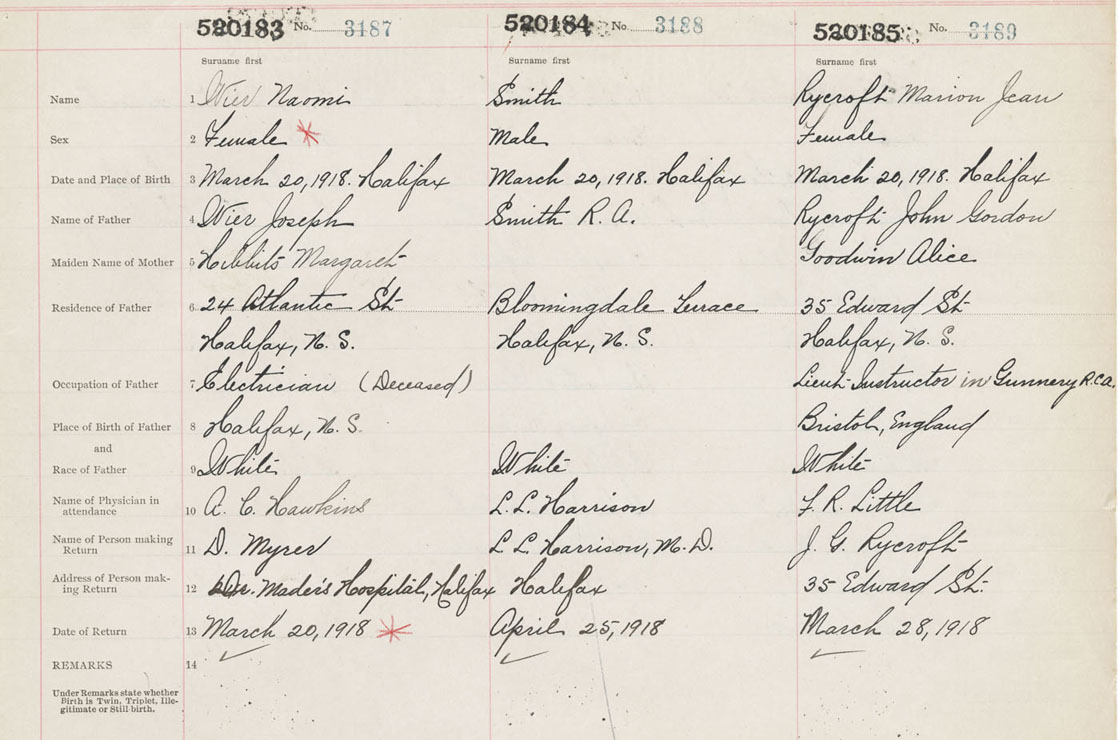 520183 No. 3187 520184 No. 3188 520185 No. 3189
Surname first Surname first Surname first
Name 1 Wier Naomi Smith Rycroft Marion Jean
Sex 2 Female * Male Female
Date and Place of Birth 3 March 20, 1918. Halifax March 20, 1918. Halifax March 20, 1918. Halifax
Name of Father 4 Wier Joseph Smith R. A. Rycroft John Gordon
Maiden Name of Mother 5 Hibbits Margaret Goodwin Alice
Residence of Father 6 24 Atlantic St Bloomingdale Terrace 35 Edward St
Halifax, N. S. Halifax, N. S. Halifax, N. S.
Occupation of Father 7 Electrician (Deceased) Lieut Instructor in Gunnery R.C.A.
Place of Birth of Father 8 Halifax, N. S. Bristol, England
and
Race of Father 9 White White White
Name of Physician in
attendance 10 A. C. Hawkins L. L. Harrison F. R. Little
Name of Person making
Return 11 D. Myrer L L. Harrison, M. D. J. G. Rycroft
Address of Person mak-
ing Return 12 Dr. Mader's Hospital, Halifax Halifax 35 Edward St.
Date of Return 13 March 20, 1918 * April 25, 1918 March 28, 1918
REMARKS 14
Under Remarks state whether
Birth is Twin, Triplet, Ille-
gitimate or Still-birth.